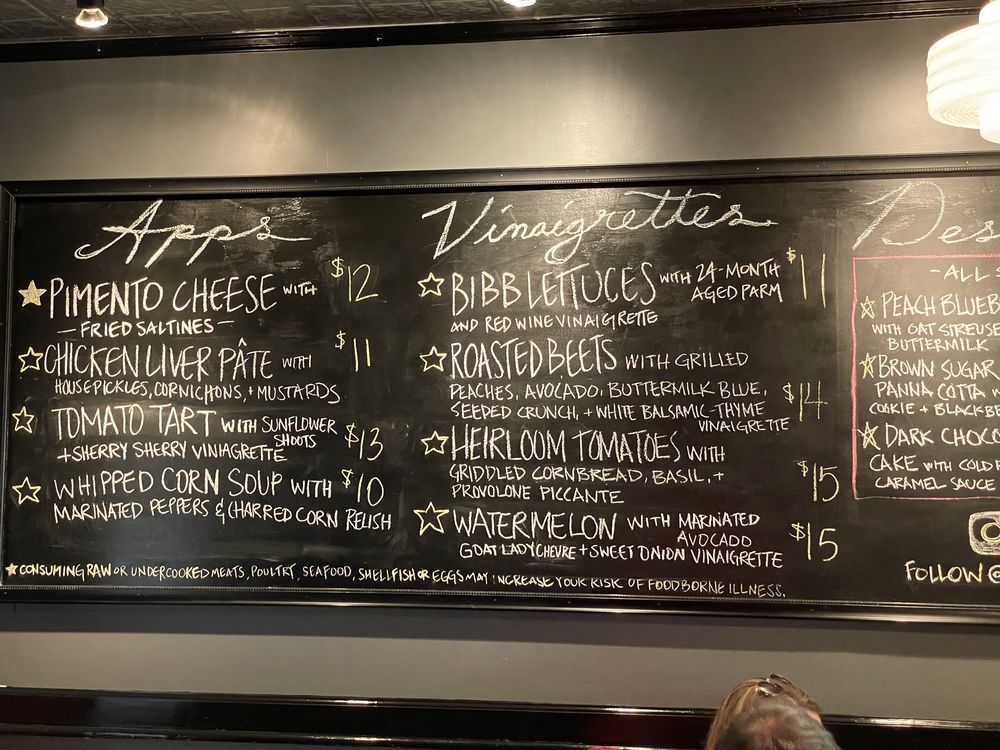 Apps
★ PIMENTO CHEESE WITH $12
— FRIED SALTINES —
☆ CHICKEN LIVER PÂTE WITH $11
HOUSE PICKLES, CORNICHONS, + MUSTARDS
☆ TOMATO TART WITH SUNFLOWER SHOOTS $13
+ SHERRY SHERRY VINIAGRETTE
☆ WHIPPED CORN SOUP WITH $10
MARINATED PEPPERS & CHARRED CORN RELISH
Vinaigrettes
☆ BIBB LETTUCES WITH 24-MONTH $11
AGED PARM
AND RED WINE VINAIGRETTE
☆ ROASTED BEETS WITH GRILLED
PEACHES, AVOCADO, BUTTERMILK BLUE, $14
SEEDED CRUNCH, + WHITE BALSAMIC-THYME
VINAIGRETTE
☆ HEIRLOOM TOMATOES WITH
GRIDDLED CORNBREAD, BASIL, + $15
PROVOLONE PICCANTE
☆ WATERMELON WITH MARINATED $15
AVOCADO
GOAT LADY CHEVRE + SWEET ONION VINAIGRETTE
★ CONSUMING RAW OR UNDERCOOKED MEATS, POULTRY, SEAFOOD, SHELLFISH OR EGGS MAY INCREASE YOUR RISK OF FOODBORNE ILLNESS.
Des
- ALL
☆ PEACH BLUEB
WITH OAT STREUSE
BUTTERMILK
☆ BROWN SUGAR
PANNA COTTA
COOKIE + BLACKB
☆ DARK CHOCO
CAKE WITH COLD
CARAMEL SAUCE
FOLLOW @